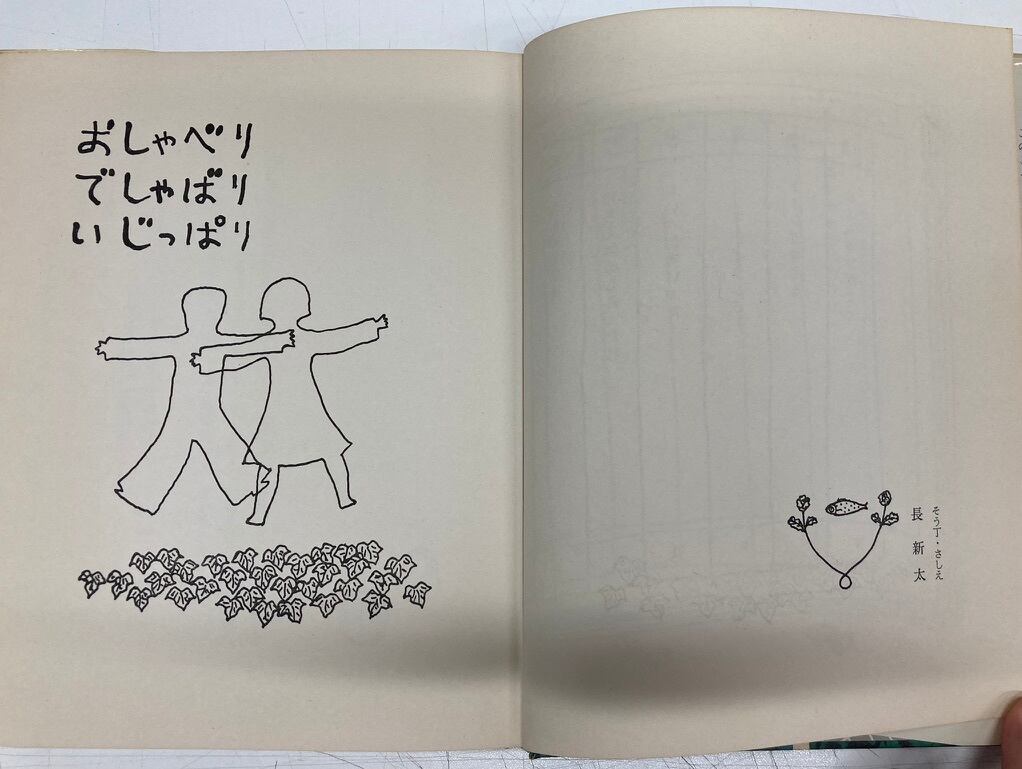 おしゃべり
でしゃばり
いじっぱり
そう丁・さしえ
長新太